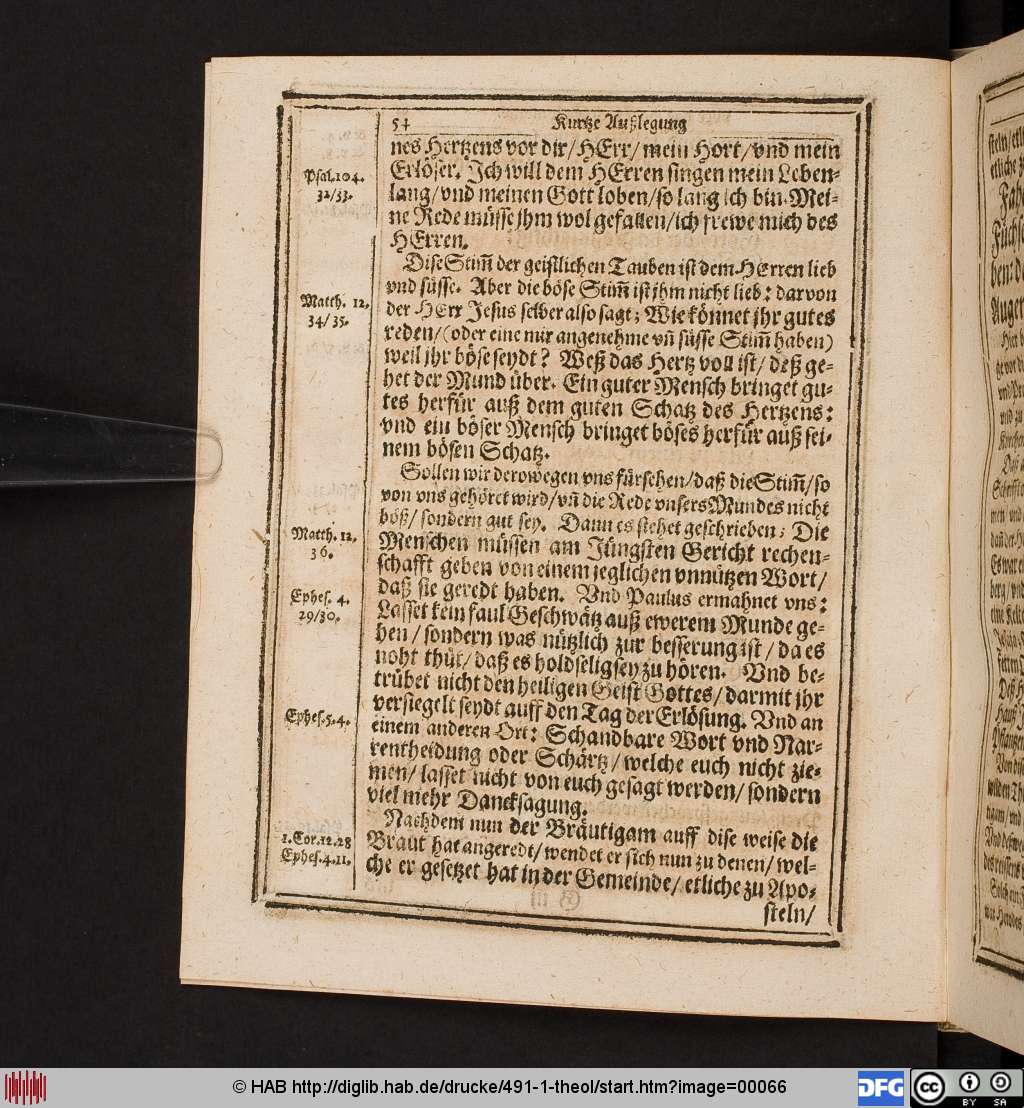 54 Kurtze Außlegung
nes Hertzens vor dir/ HErr/ mein Hort/ vnd mein
Erlöser. Ich will dem HErren singen mein Leben-
lang/ vnd meinen Gott loben/ so lang ich bin. Mei-
ne Rede müsse jhm wol gefallen/ ich frewe mich des
HErren.
Psal.104.
32/33.
Dise Stim̃ der geistlichen Tauben ist dem HErren lieb
vnd süsse. Aber die böse Stim̃ ist jhm nicht lieb: darvon
der HErr Jesus selber also sagt; Wie könnet jhr gutes
reden/ (oder eine mir angenehme vñ süsse Stim̃ haben)
weil jhr böse seydt? Weß das Hertz voll ist/ deß ge-
het der Mund über. Ein guter Mensch bringet gu-
tes herfür auß dem guten Schatz des Hertzens:
vnd ein böser Mensch bringet böses herfür auß sei-
nem bösen Schatz.
Matth. 12.
34/35.
Sollen wir derowegen vns fürsehen/ daß die Stim̃/ so
von vns gehöret wird/ vñ die Rede vnsers Mundes nicht
böß/ sondern gut sey. Dann es stehet geschrieben; Die
Menschen müssen am Jüngsten Gericht rechen-
schafft geben von einem jeglichen vnnützen Wort/
daß sie geredt haben. Vnd Paulus ermahnet vns:
Lasset kein faul Geschwätz auß ewerem Munde ge-
hen/ sondern was nützlich zur besserung ist/ da es
noht thüt/ daß es holdselig sey zu hören. Vnd be-
trübet nicht den heiligen Geist Gottes/ darmit jhr
versiegelt seydt auff den Tag der Erlösung. Vnd an
einem anderen Ort: Schandbare Wort vnd Nar-
rentheidung oder Schärtz/ welche euch nicht zie-
men/ lasset nicht von euch gesagt werden/ sondern
viel mehr Dancksagung.
Matth. 12.
36.
Ephes. 4.
29/30.
Ephes.5.4.
Nachdem nun der Bräutigam auff dise weise die
Braut hat angeredt/ wendet er sich nun zu denen/ wel-
che er gesetzet hat in der Gemeinde/ etliche zu Apo-
steln/
1.Cor.12.28
Ephes.4.11.
© HAB http://diglib.hab.de/drucke/491-1-theol/start.htm?image=00066
DFG
cc BY SA